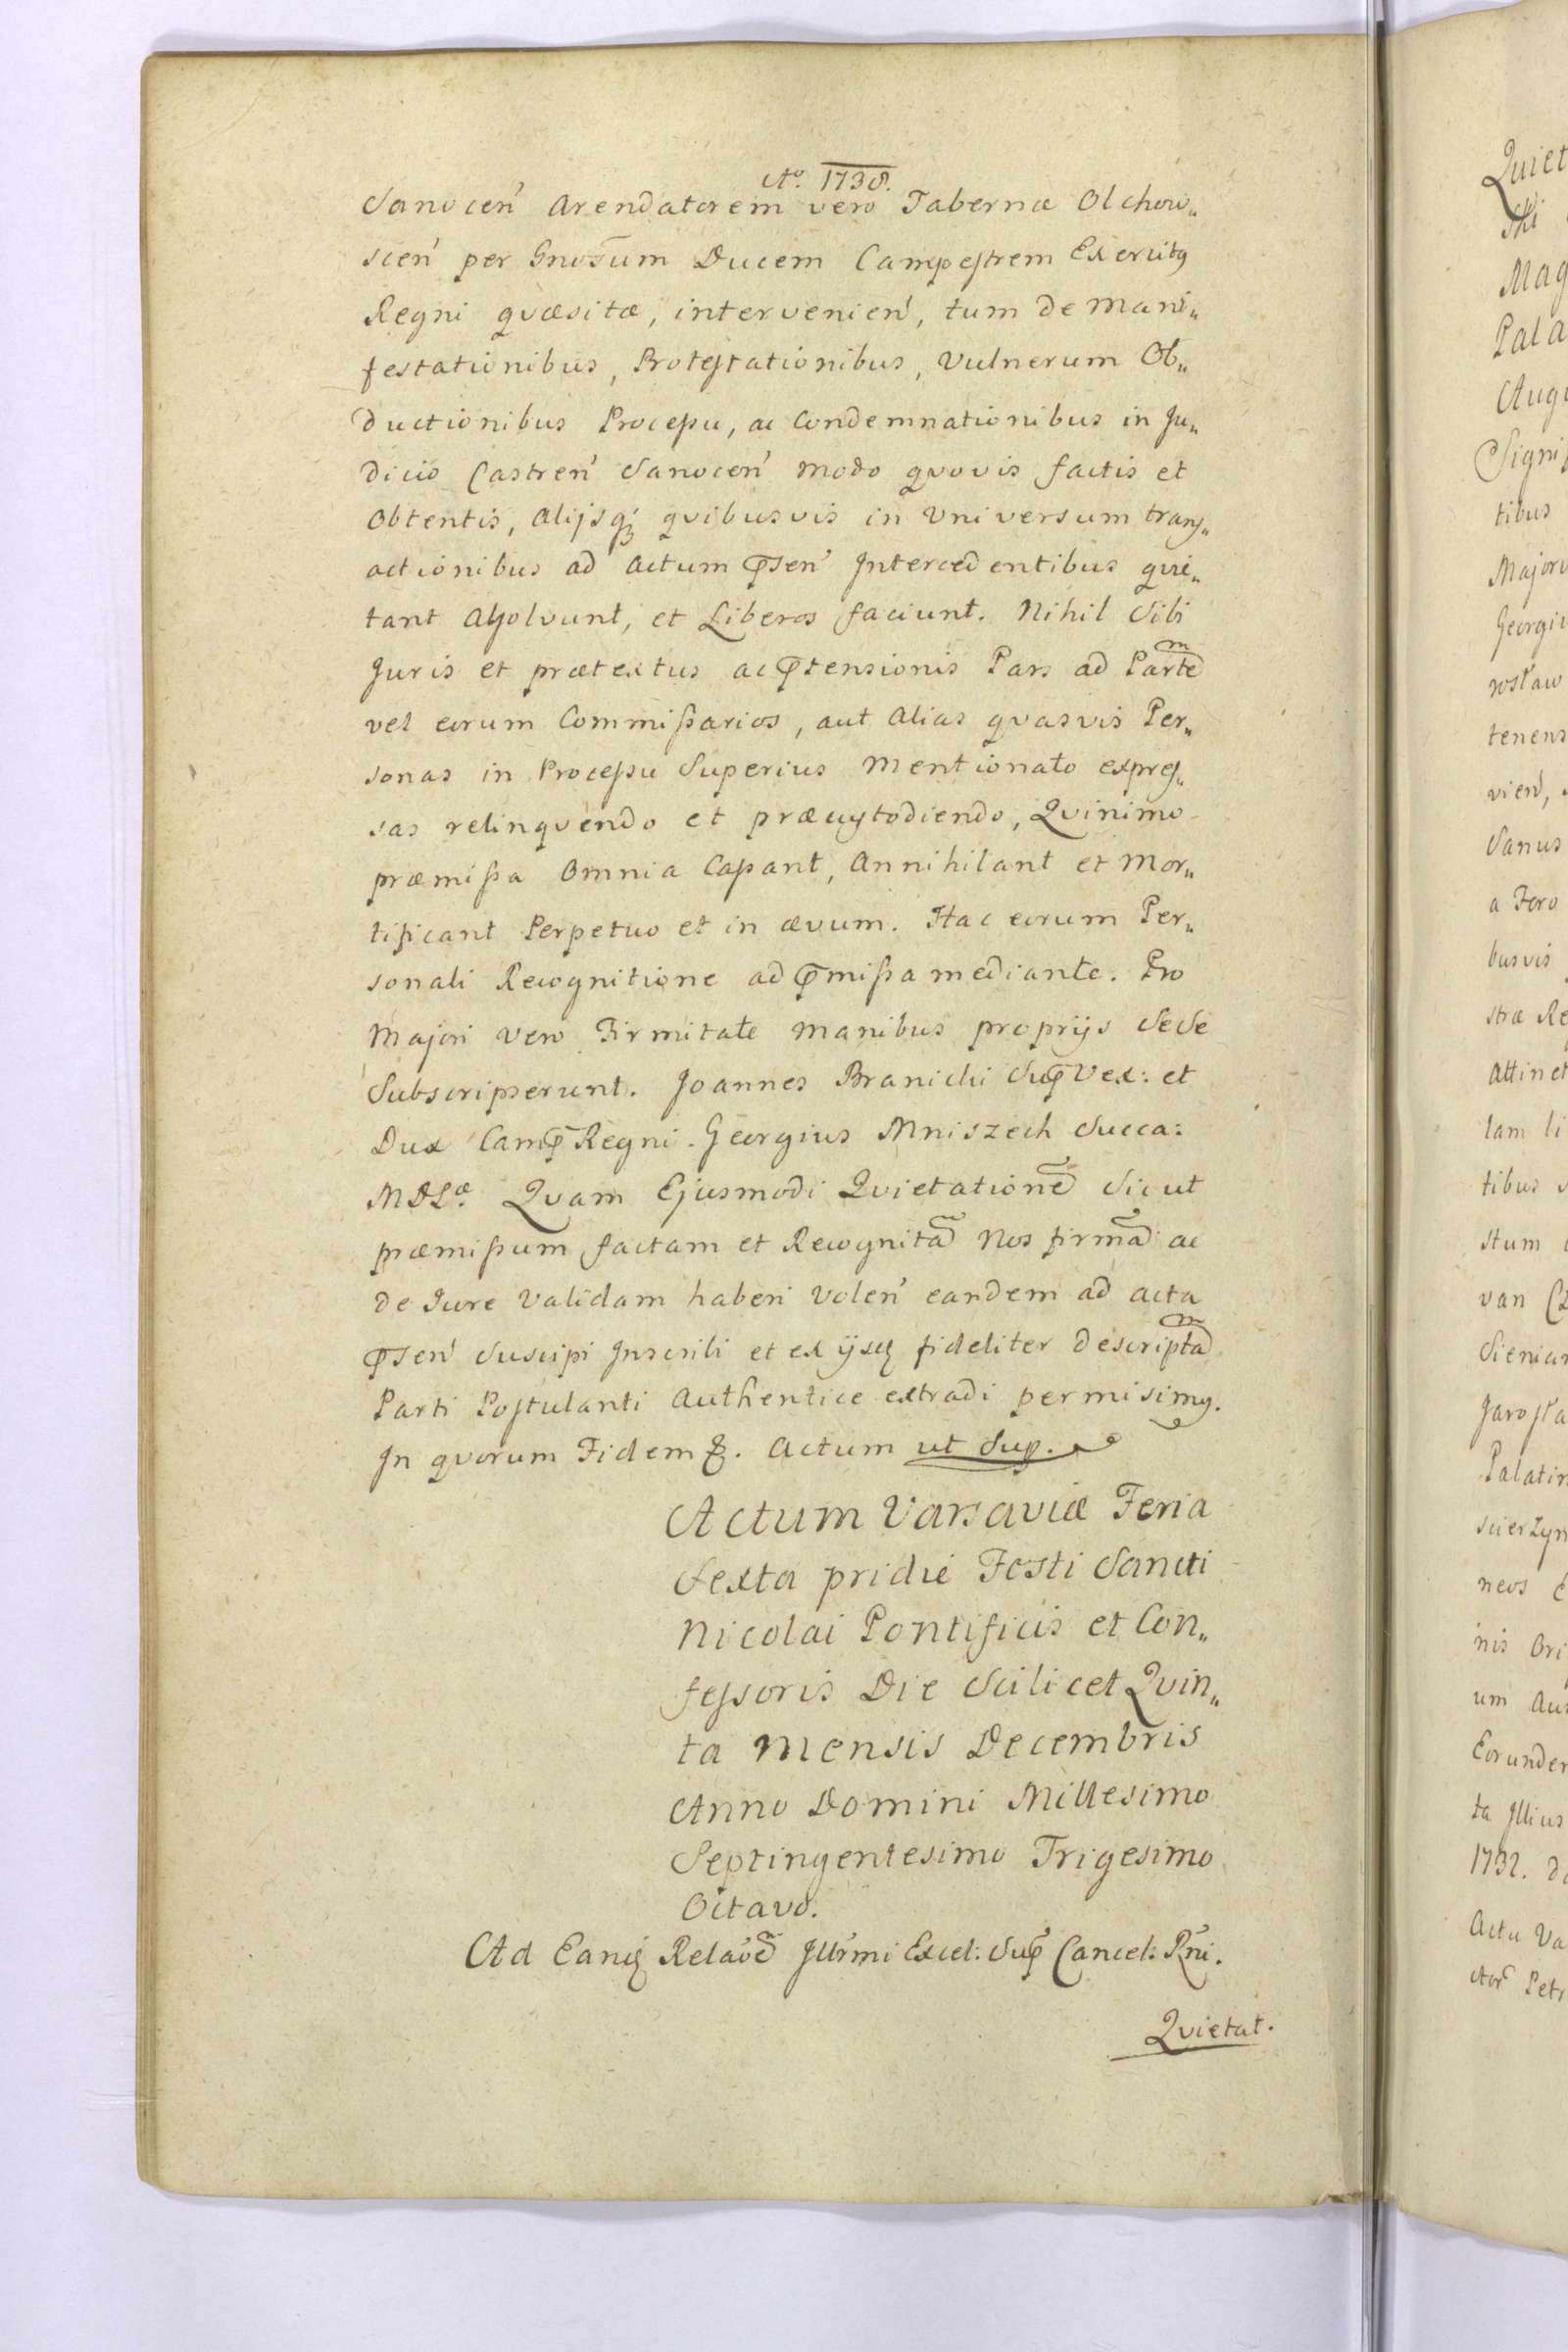 Ao. 1738.
Sanocen̄ Arendatorem vero Tabernæ Olchow„
scen̄ per Gnos̄um Ducem Campestrem Exercitꝰ
Regni qvæsitæ, intervenien̄, tum de Mani„
festationibus, Protestationibus, Vulnerum Ob„
ductionibus Processu, ac Condemnationibus in Ju„
dicio Castren̄ Sanocen̄ modo qvovis factis et
Obtentis, Alijsq; qvibusvis in Universum trans„
actionibus ad Actum p̄sen̄ Intercedentibus qvie„
tant Absolvunt, et Liberos faciunt. Nihil Sibi
Juris et prætextus ac p̄tensionis Pars ad Partem̄
vel eorum Commissarios, aut Alias qvasvis Per„
sonas in Processu Superius Mentionato expres„
sas relinqvendo et præcustodiendo, Qvinimo
præmissa Omnia Cassant, Annihilant et Mor„
tificant Perpetuo et in ævum. Hac eorum Per„
sonali Recognitione ad p̄missa mediante. Pro
Majori vero Firmitate Manibus proprijs Sese
Subscripserunt. Joannes Branicki Sup̄ Vex: et
Dux Camp̄ Regni. Georgius Mniszech Succa:
MDLæ. Qvam Ejusmodi Qvietatione͠ Sicut
præmissum factam et Recognita͠ Nos firma͠ ac
de Jure Validam haberi Volen̄ eandem ad Acta
p̄sen̄ Suscipi Inscribi et ex ijsq; fideliter descriptam̄
Parti Postulanti Authentice extradi permisimꝰ.
In qvorum Fidem &. Actum ut Sup.
Actum Varsaviæ Feria
Sexta pridie Festi Sancti
Nicolai Pontificis et Con„
fessoris Die Scilicet Qvin„
ta Mensis Decembris
Anno Domini Millesimo
Septingentesimo Trigesimo
Octavo.
Ad Eanq; Relaōe͠ Jllr̄mi Excel: Sup̄ Cancel: Rn̄i.
Qvietat.
Quiet
Mag
Pala
Augu
tibus
Majoru
Georgi
rosław
tenens
vien̄,
Sanus
a Foro
busvis
stræ Re
Attinet
lam li
tibus
stum
van
Sienia
Jarosła
Palatin
neos
nis Ori
um Au
Eorunder
ta Jllius
1732. d
Actu Va
Petr